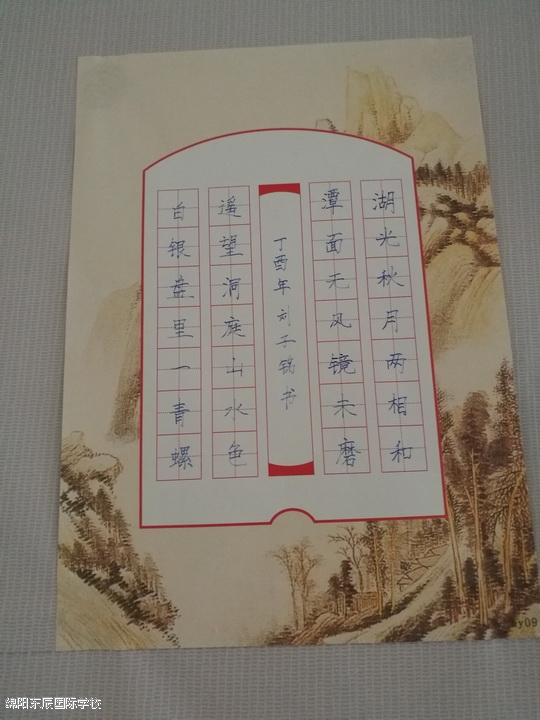 湖光秋月两相和
潭面无风镜未磨
丁酉年刘子铭书
遥望洞庭山水色
白银盘里一青螺
y09
绵阳东辰国际学校